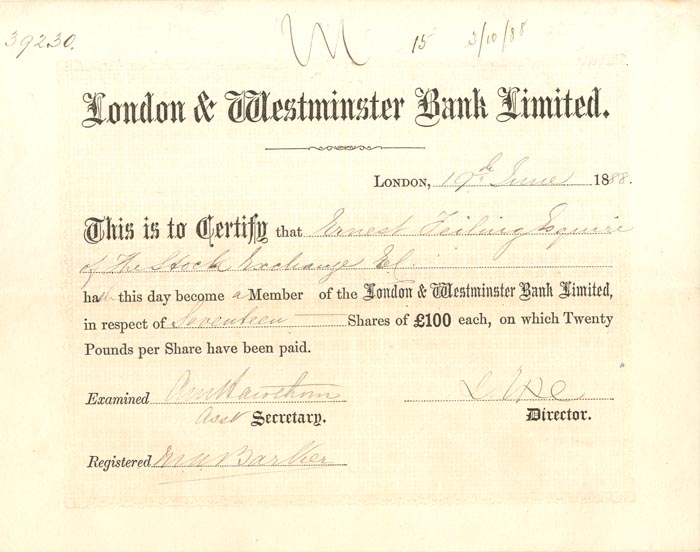 39230. 15 3/10/88
London & Westminster Bank Limited.
London, 19th June 1888.
This is to Certify that Ernest Feiling Esquire
of the Stock Exchange EC.
hath this day become a Member of the London & Westminster Bank Limited,
in respect of Seventeen Shares of £100 each, on which Twenty
Pounds per Share have been paid.
Examined
Asst Secretary. Director.
Registered Barker